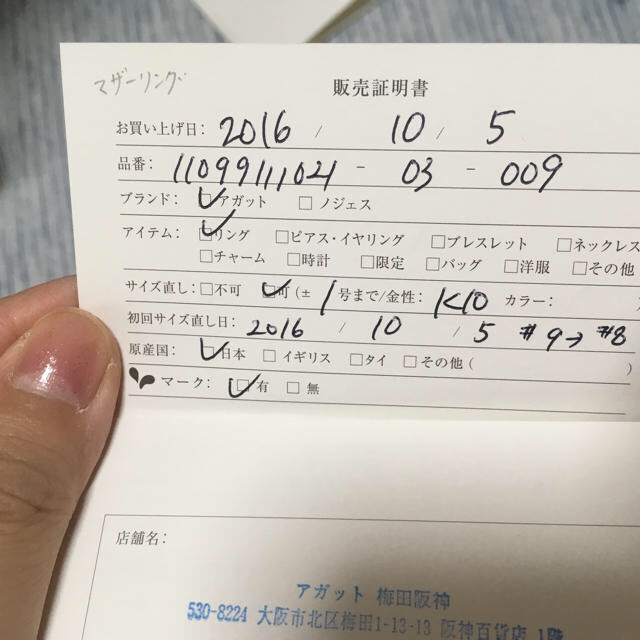 マザーリング
販売証明書
お買い上げ日: 2016 / 10 / 5
品番: 11099111021 - 03 - 009
ブランド: ☑アガット □ノジェス
アイテム: ☑リング □ピアス・イヤリング □ブレスレット □ネックレス
□チャーム □時計 □限定 □バッグ □洋服 □その他
サイズ直し: □不可 ☑可(± 1号まで/金性: K10 カラー:
初回サイズ直し日: 2016 / 10 / 5 #9→#8
原産国: ☑日本 □イギリス □タイ □その他( )
マーク: ☑有 □無
店舗名:
アガット 梅田阪神
530-8224 大阪市北区梅田1-13-13 阪神百貨店 1階